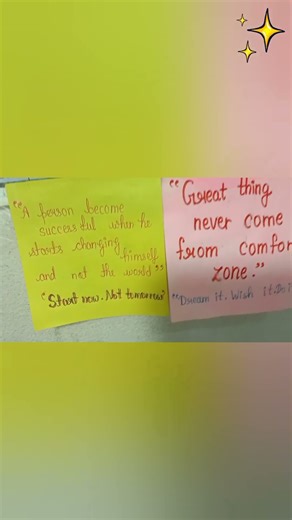 "A person become
successful when he
starts changing
himself
and not the world"
"Start now. Not tomorrow"
"Great thing
never come
from comfor
zone."
"Dream it. Wish it.